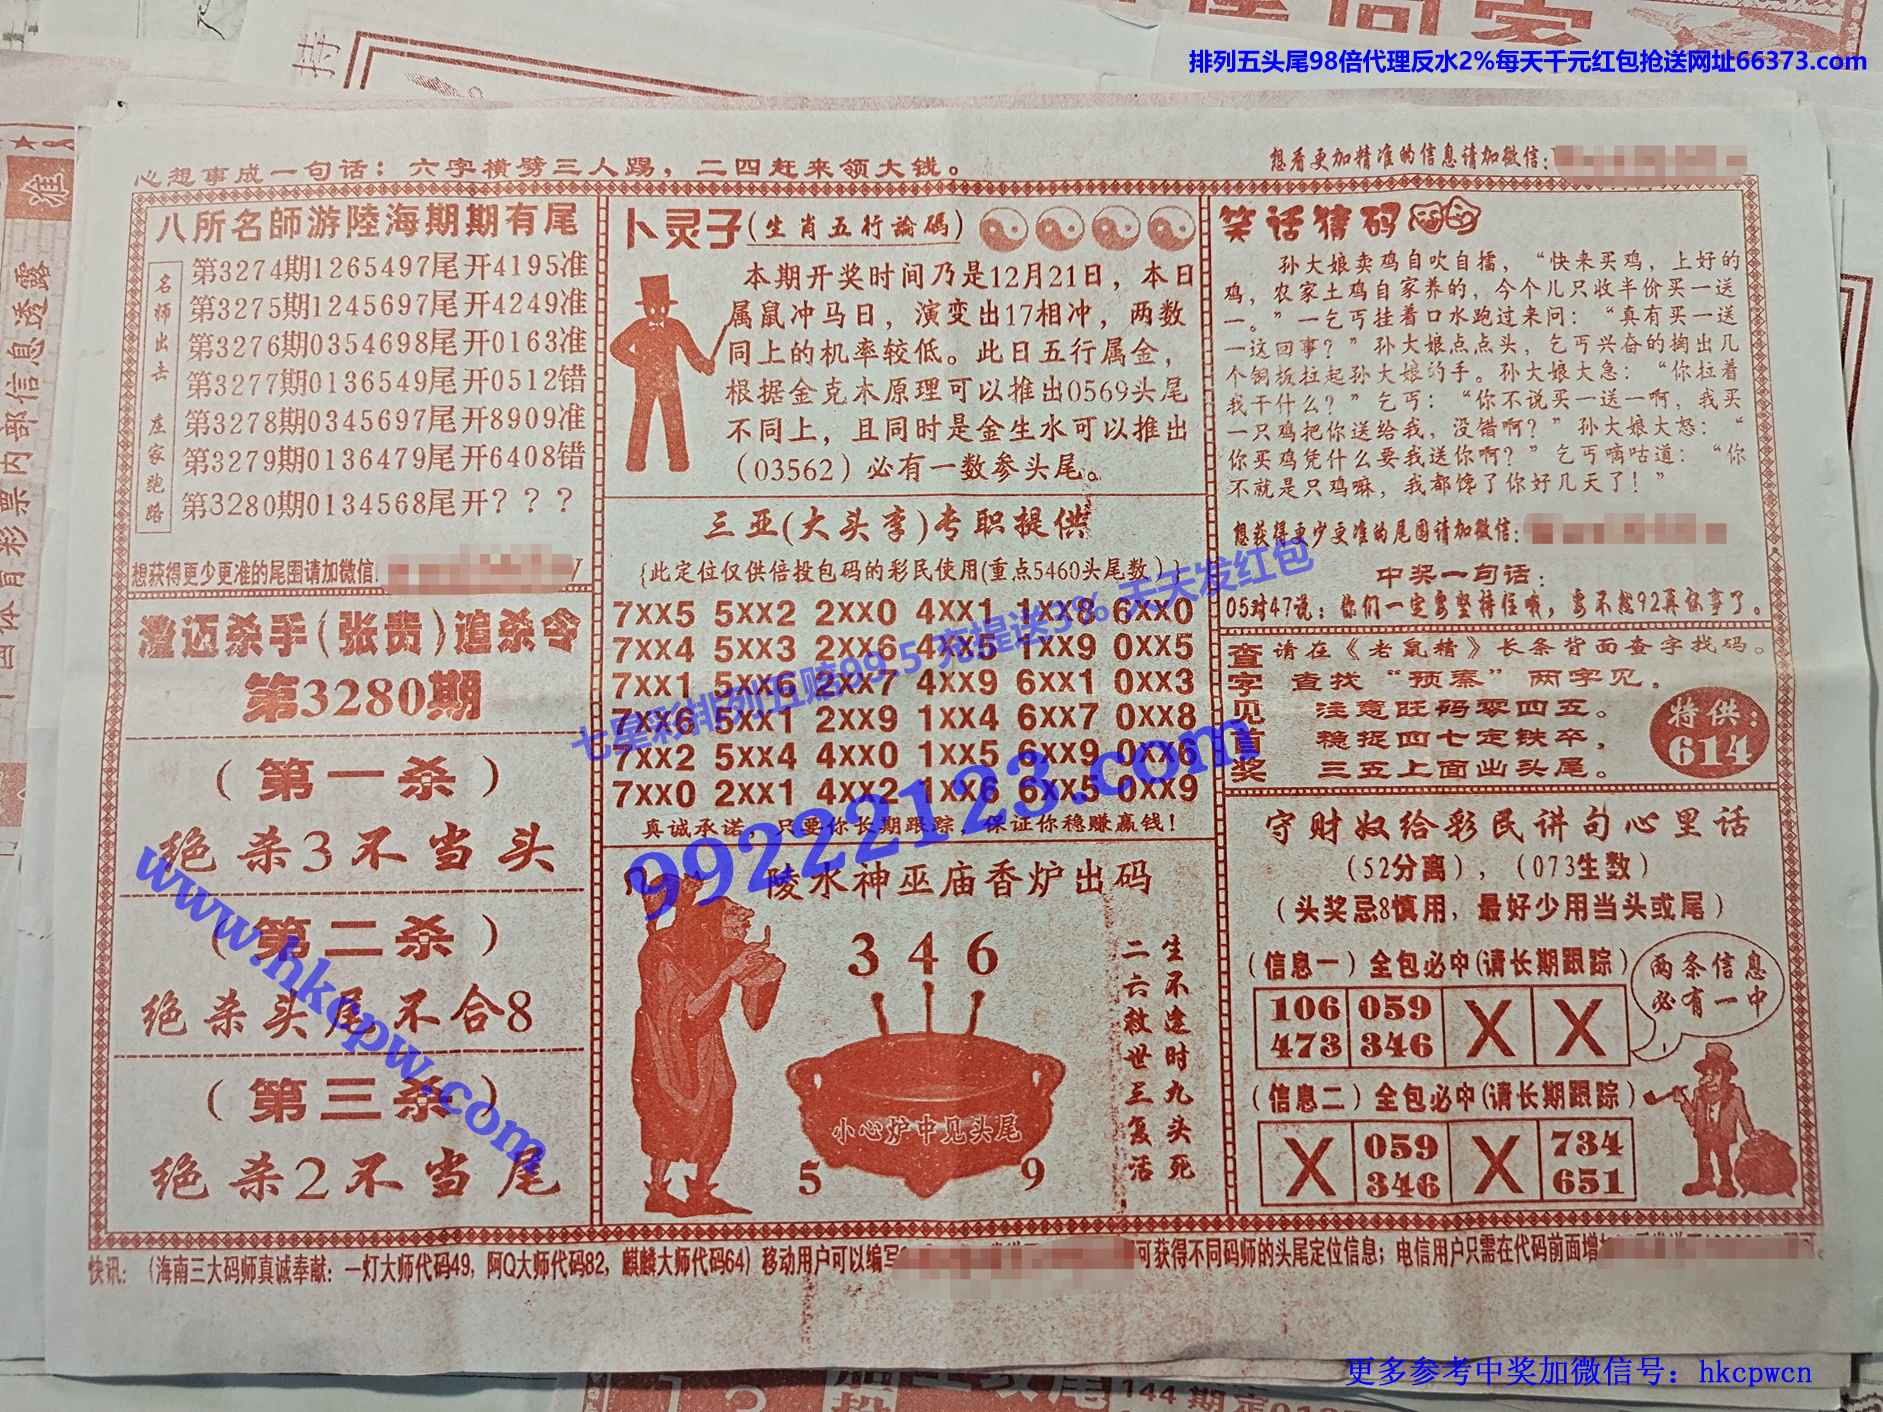 排列五头尾98倍代理反水2%每天千元红包抢送网址66373.com
心想事成一句话：六字横劈三人踢，二四赶来领大钱。
想看更加精准的信息请加微信：
准
八所名師游陸海期期有尾
名师出击 庄家跑路
第3274期1265497尾开4195准
第3275期1245697尾开4249准
第3276期0354698尾开0163准
第3277期0136549尾开0512错
第3278期0345697尾开8909准
第3279期0136479尾开6408错
第3280期0134568尾开？？？
想获得更少更准的尾围请加微信:
澄迈杀手(张贵)追杀令
第3280期
（第一杀）
绝杀3不当头
（第二杀）
绝杀头尾不合8
（第三杀）
绝杀2不当尾
卜灵子(生肖五行論碼)
本期开奖时间乃是12月21日，本日
属鼠冲马日，演变出17相冲，两数
同上的机率较低。此日五行属金，
根据金克木原理可以推出0569头尾
不同上，且同时是金生水可以推出
（03562）必有一数参头尾。
三亚(大头李)专职提供
{此定位仅供倍投包码的彩民使用(重点5460头尾数)}
7XX5 5XX2 2XX0 4XX1 1XX8 6XX0
7XX4 5XX3 2XX6 4XX5 1XX9 0XX5
7XX1 5XX6 2XX7 4XX9 6XX1 0XX3
7XX6 5XX1 2XX9 1XX4 6XX7 0XX8
7XX2 5XX4 4XX0 1XX5 6XX9 0XX6
7XX0 2XX1 4XX2 1XX6 6XX5 0XX9
真诚承诺，只要你长期跟踪，保证你稳赚赢钱！
陵水神巫庙香炉出码
3 4 6
小心炉中见头尾
5 9
生不逢时九头死
二六救世三复活
笑话猜码
孙大娘卖鸡自吹自擂，“快来买鸡，上好的
鸡，农家土鸡自家养的，今个儿只收半价买一送
一。”一乞丐挂着口水跑过来问：“真有买一送
一这回事？”孙大娘点点头，乞丐兴奋的掏出几
个铜板拉起孙大娘的手。孙大娘大急：“你拉着
我干什么？”乞丐：“你不说买一送一啊，我买
一只鸡把你送给我，没错啊？”孙大娘大怒：“
你买鸡凭什么要我送你啊？”乞丐嘀咕道：“你
不就是只鸡嘛，我都馋了你好几天了！”
想获得更少更准的尾围请加微信:
中奖一句话：
05对47说：你们一定要坚持住哦，要不然92再你事了。
查字见首奖
请在《老鼠精》长条背面查字找码。
查找“预寨”两字见。
注意旺码零四五。
稳捉四七定铁卒，
三五上面出头尾。
特供：
614
守财奴给彩民讲句心里话
（52分离），（073生数）
（头奖忌8慎用，最好少用当头或尾）
（信息一）全包必中(请长期跟踪)
106 059 X X
473 346
两条信息
必有一中
（信息二）全包必中(请长期跟踪)
X 059 X 734
346 651
快讯：（海南三大码师真诚奉献：一灯大师代码49，阿Q大师代码82，麒麟大师代码64）移动用户可以编写
可获得不同码师的头尾定位信息；电信用户只需在代码前面增加
七星彩排列五赔99.5 充提送3% 天天发红包
99222123.com
www.hkcpw.com
更多参考中奖加微信号：hkcpwcn